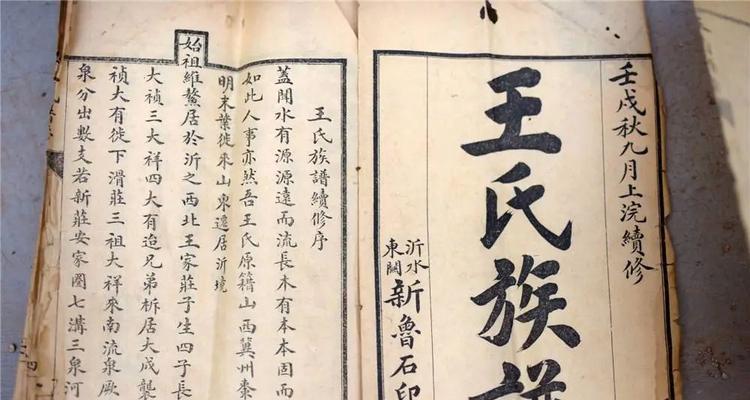 壬戌秋九月上浣續修
王氏族譜
沂水
東關
新魯石印
王氏族譜續修序
蓋聞水有源源遠而流長木有本本固而
如此人事亦然吾王氏原籍山西冀州棗
明末業徙來山東遷居沂境
始祖維鰲居於沂之西北王家莊子生四子長
大禎三大祥四大有迨兄弟析居大成襲
禎大有徙下滑莊三祖大祥來南流泉厥
泉分出數支若新莊安家圈七溝三泉河